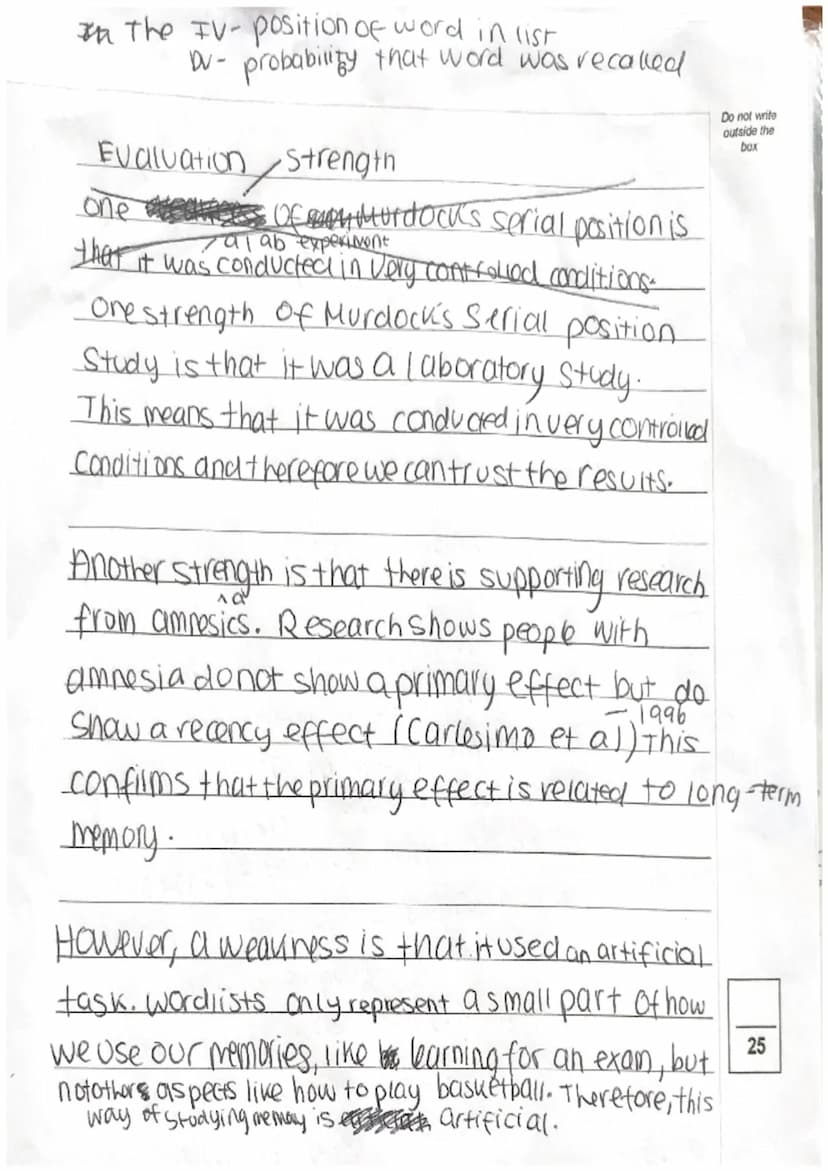 In The IV - position of word in list
DV - probability that word was recalled
Do not write
outside the
box
Evaluation / strength
one of Murdock's serial position is
a lab experiment
that it was conducted in very controlled conditions.
One strength of Murdock's Serial position
Study is that it was a laboratory study.
This means that it was conducted in very controlled
conditions and therefore we can trust the results.
Another strength is that there is supporting research
from amnesics. Research shows people with
amnesia do not show a primary effect but do
- 1996
show a recency effect (Carlesimo et al) This
confirms that the primary effect is related to long-term
memory.
However, a weakness is that it used an artificial
task. Wordlists only represent a small part of how
we use our memories, like learning for an exam, but
25
not others aspects like how to play basketball. Therefore, this
way of studying memory is artificial.